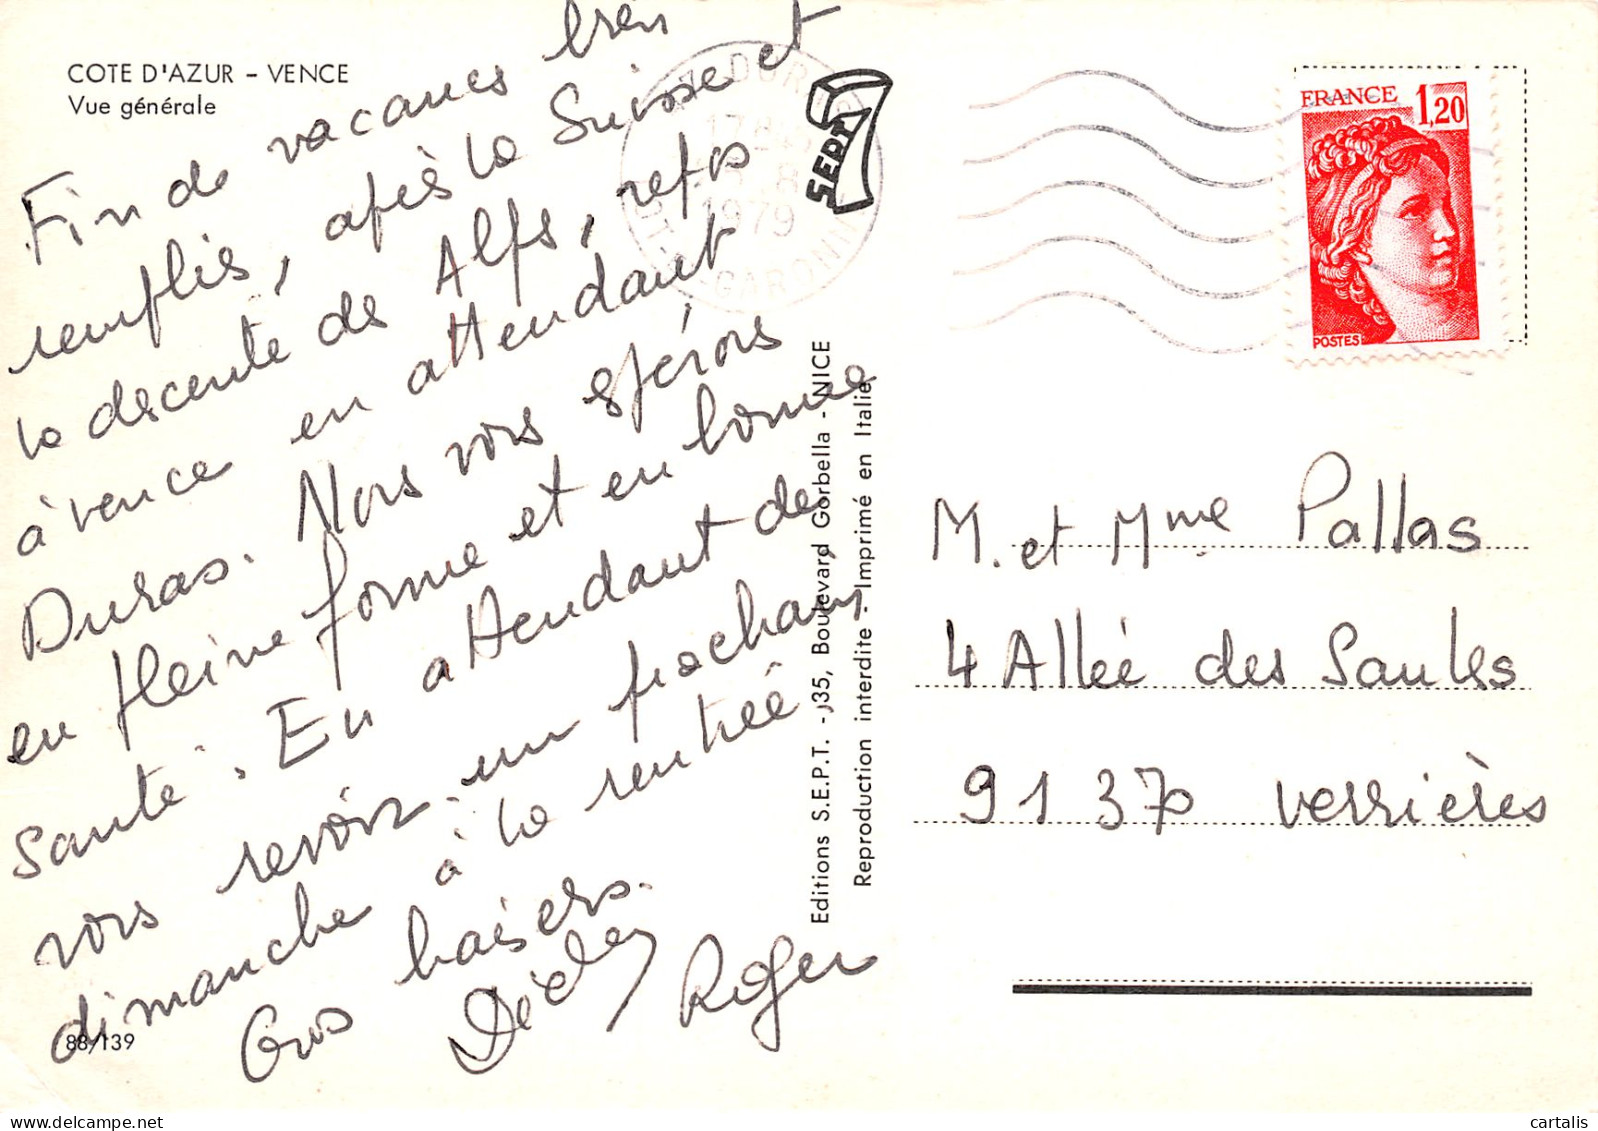 COTE D'AZUR - VENCE
Vue générale
Fin de vacances bien
remplis, après la Suisse et
la descente des Alps, repos
à vence en attendant
Duras. Nous vous espérons
en pleine forme et en bonne
santé. En attendant de
vous revoir un prochain
dimanche à la rentrée
Gros baisers.
Roger
88/139
Editions S.E.P.T. - 135, Boulevard Gorbella - NICE
Reproduction interdite - Imprimé en Italie
SEPT
1979
GARONNE
FRANCE 1,20
POSTES
M. et Mme Pallas
4 Allée des Saules
91370 verrières
cartalis